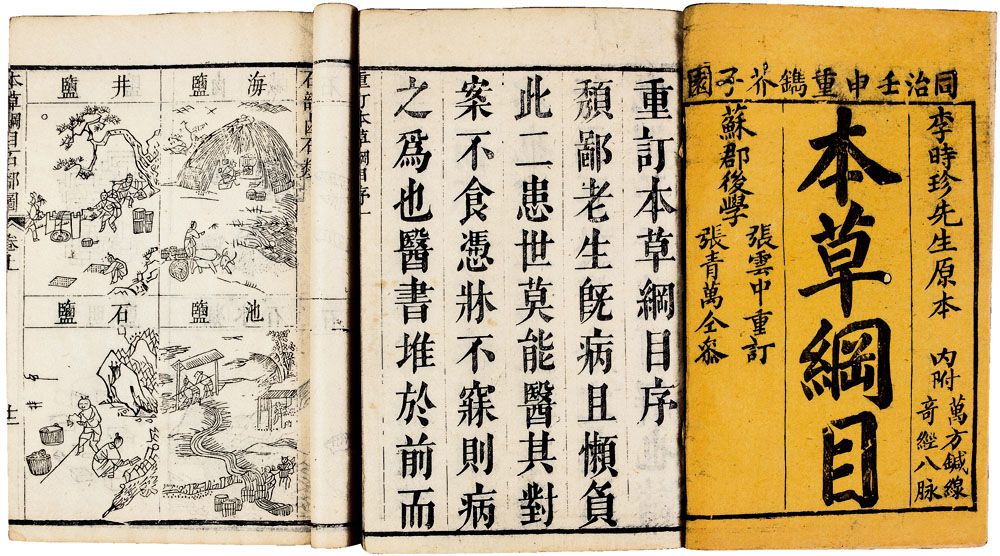 同治壬申重鐫芥子園
李時珍先生原本
內附
萬方鍼線
奇經八脉
本草綱目
蘇郡後學
張雲中重訂
張青萬仝叅
重訂本草綱目序
頽鄙老生旣病且懶負
此二患世莫能醫其對
案不食憑牀不寐則病
之爲也醫書堆於前而
重訂本草綱目序 一
石部鹵石類
海鹽
井鹽
池鹽
石鹽
本草綱目石部圖